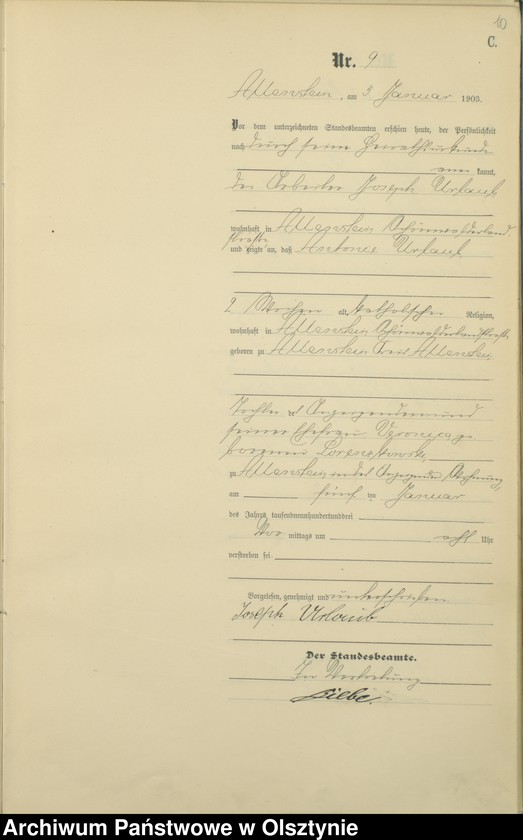 10
C.
Nr. 9
Allenstein, am 5. Januar 1903.
Vor dem unterzeichneten Standesbeamten erschien heute, der Persönlichkeit
nach durch seine Heirathsurkunde
kannt,
der Arbeiter Joseph Urlaub
wohnhaft in Allenstein Schönwalderland
straße
und zeigte an, daß Antonie Urlaub
2 Wochen alt, katholischer Religion,
wohnhaft in Allenstein Schönwalderlandstraße
geboren zu Allenstein Kreis Allenstein
Tochter des Anzeigenden und
seiner Ehefrau Veronica ge
borenen
zu Allenstein in des Anzeigenden Wohnung,
am fünf ten Januar
des Jahres tausendneunhundertunddrei
Vor mittags um acht Uhr
verstorben sei.
Vorgelesen, genehmigt und unterschrieben
Joseph Urlaub
Der Standesbeamte.
In Vertretung
Archiwum Państwowe w Olsztynie